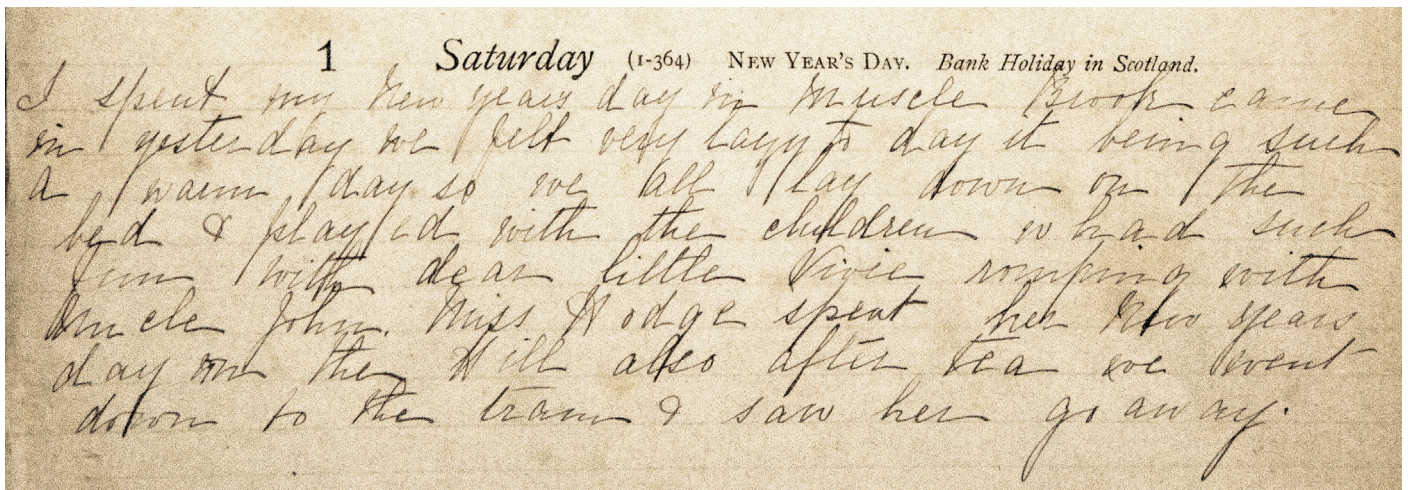 1 Saturday (1-364) NEW YEAR'S DAY. Bank Holiday in Scotland.
I spent my New years day in Muscle Brook came
in yesterday we felt very lazy to day it being such
a warm day so we all lay down on the
bed & played with the children & had such
fun with dear little Vivie romping with
Uncle John. Miss Hodge spent her New years
day on the Hill also after tea we went
down to the tram & saw her go away.